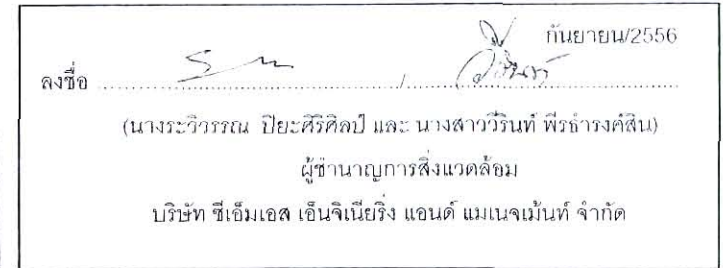 กันยายน/2556
ลงชื่อ ........................................ / ........................................
(นางระวิวรรณ ปิยะศิริศิลป์ และ นางสาววีรินท์ พีรธำรงค์สิน)
ผู้ชำนาญการสิ่งแวดล้อม
บริษัท ซีเอ็มเอส เอ็นจิเนียริ่ง แอนด์ แมเนจเม้นท์ จำกัด